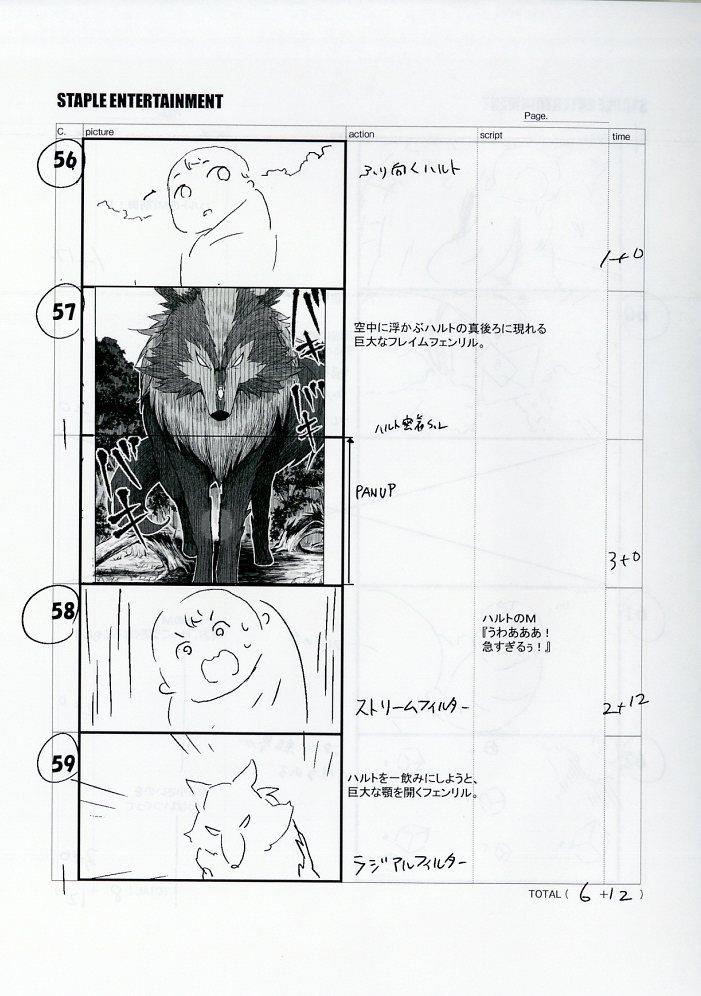 STAPLE ENTERTAINMENT
Page.
C. picture action script time
56
ふり向くハルト
1+0
57
バキ
バキ
バキ
空中に浮かぶハルトの真後ろに現れる
巨大なフレイムフェンリル。
PAN UP
3+0
58
ハルトのM
『うわあああ!
急すぎるぅ!』
ストリームフィルター
2+12
59
ハルトを一飲みにしようと、
巨大な顎を開くフェンリル。
ラジアルフィルター
TOTAL ( 6+12 )